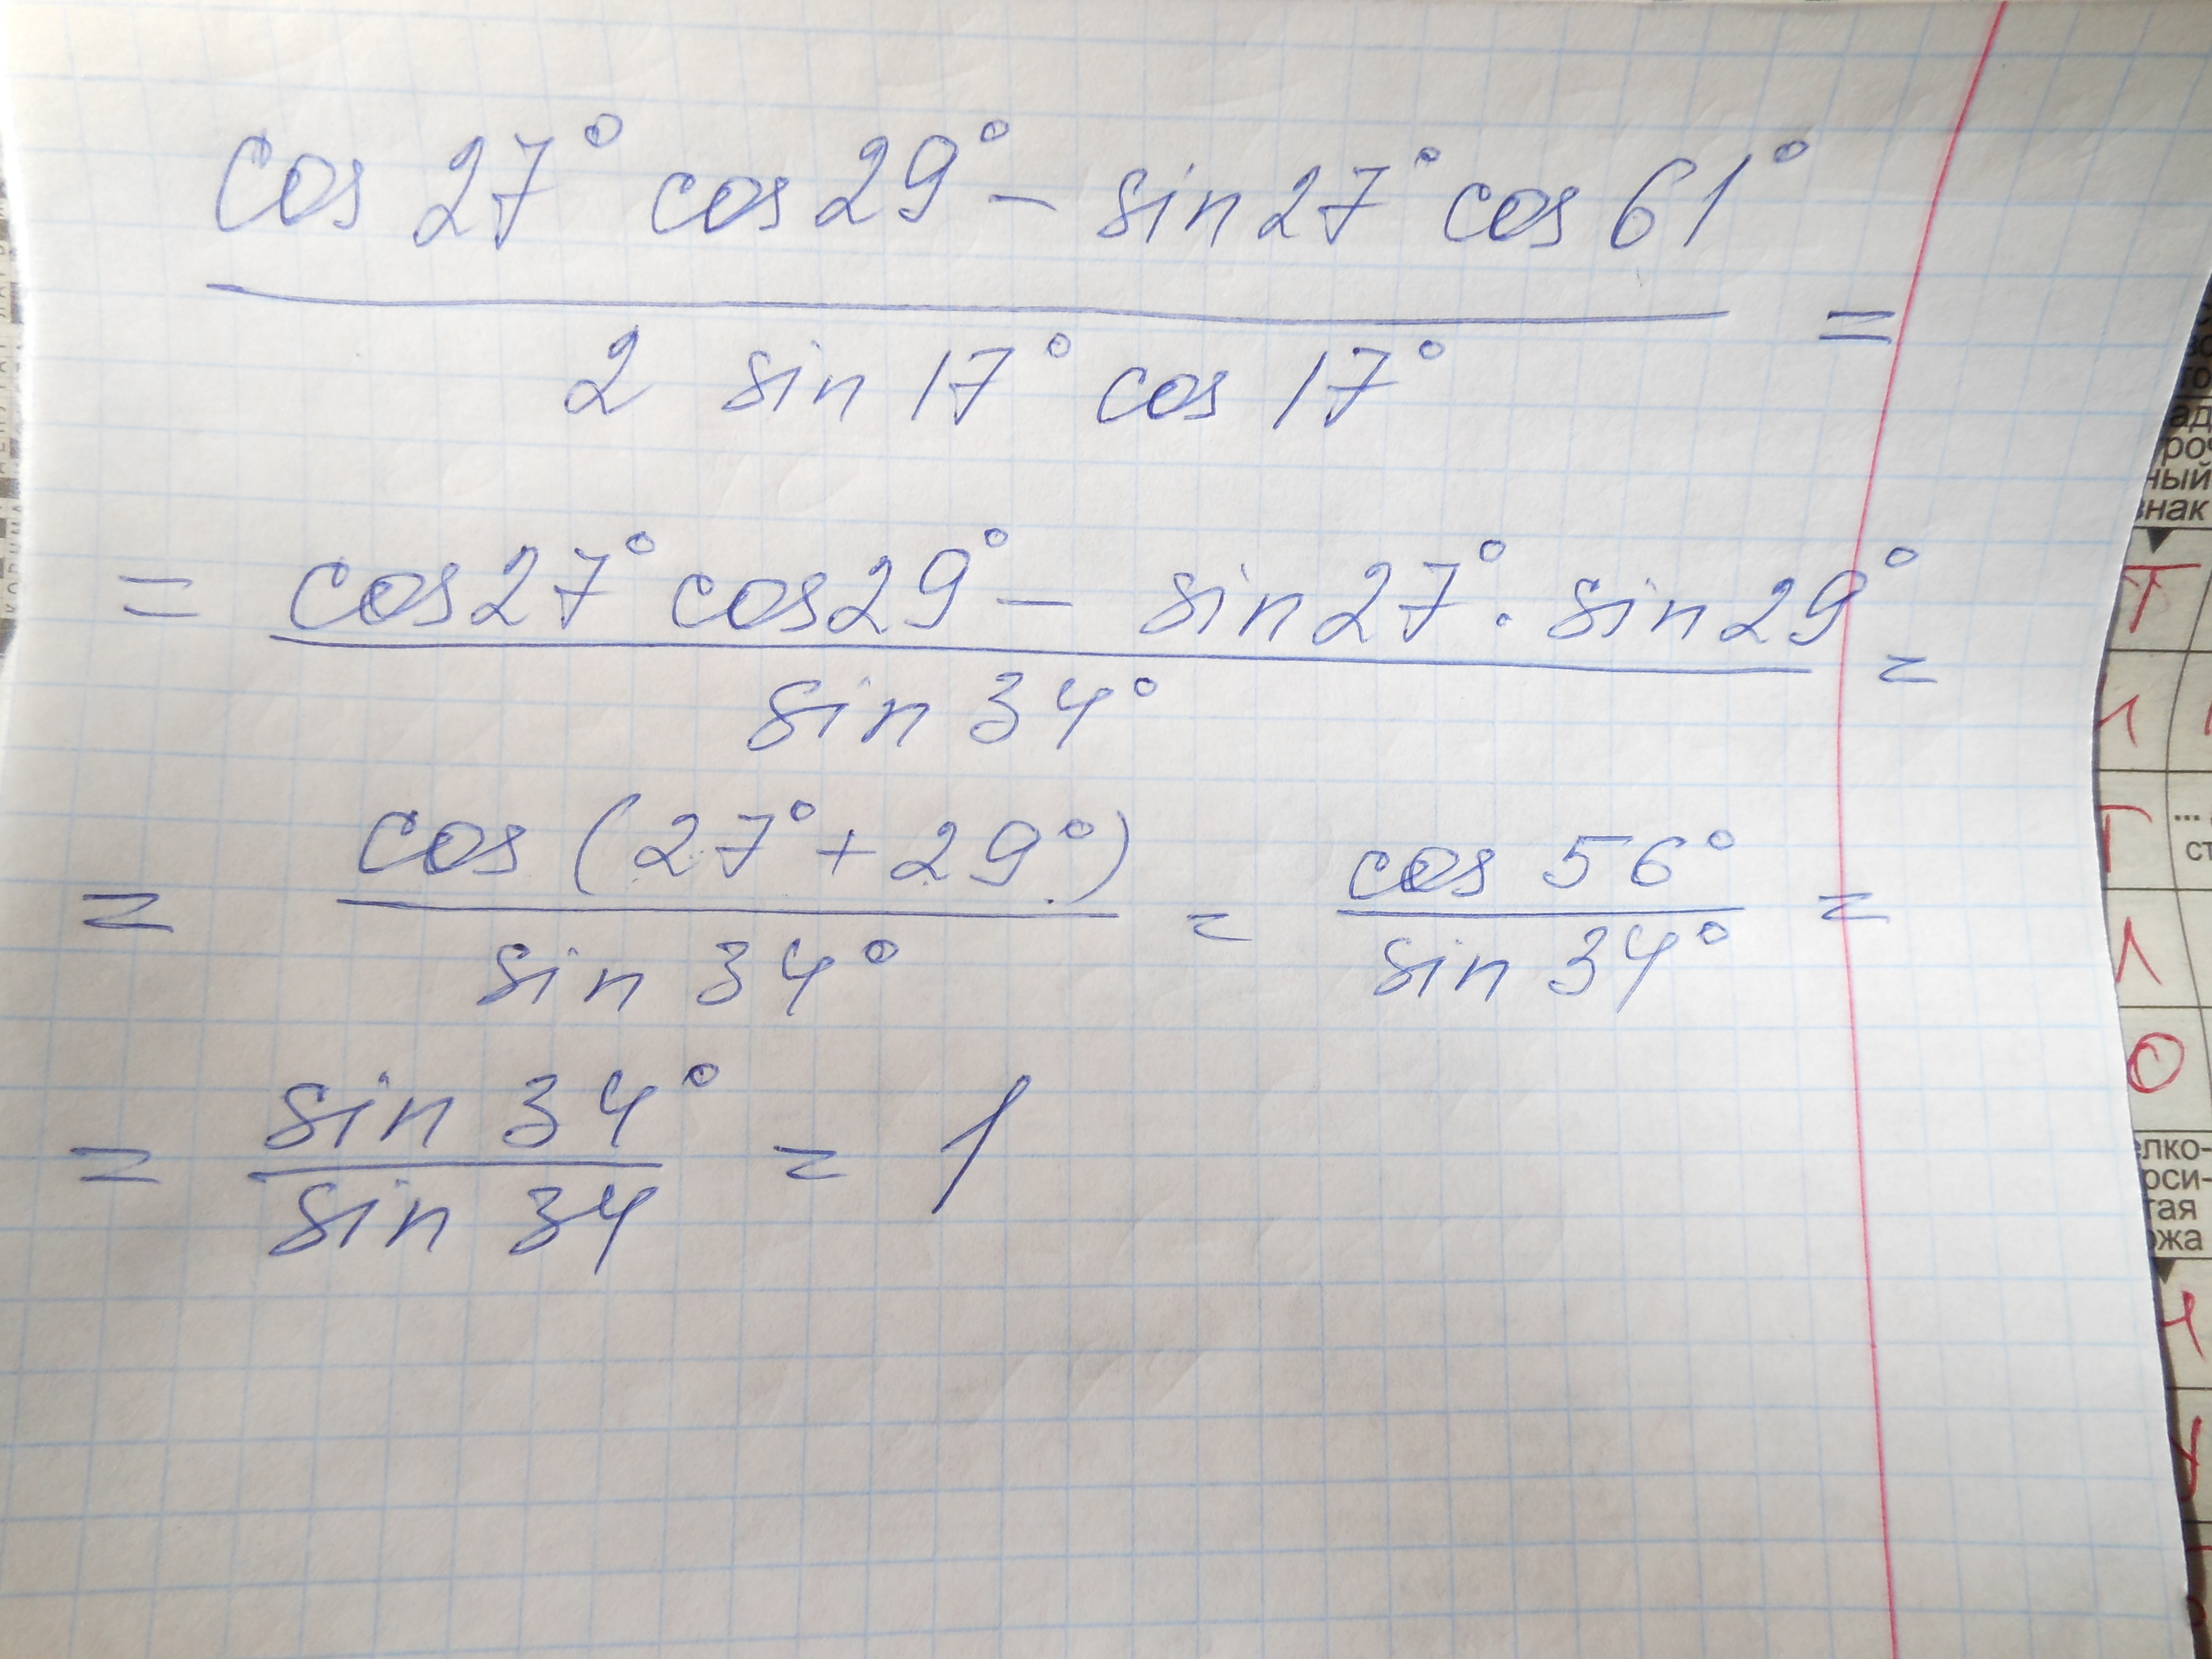 cos 27° cos 29° − sin 27° cos 61°
2 sin 17° cos 17° =
= cos 27° cos 29° − sin 27° · sin 29° =
sin 34°
= cos (27° + 29°) = cos 56° =
sin 34° sin 34°
= sin 34° = 1
sin 34
ный
знак
...
ст
лко-
рси-
тая
жа